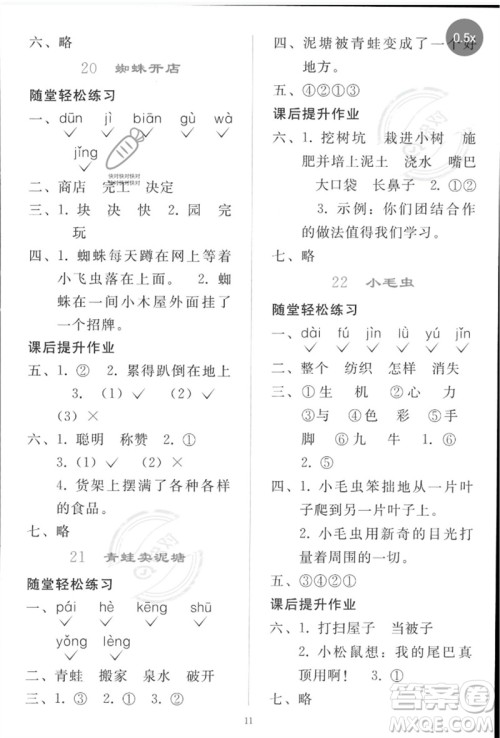 六、略
20 蜘蛛开店
随堂轻松练习
一、dūn jì biān gù wà
jǐng
快对快对快对
二、商店 完工 决定
三、1. 块 决 快 2. 园 完
玩
四、1. 蜘蛛每天蹲在网上等着
小飞虫落在上面。 2. 蜘
蛛在一间小木屋外面挂了
一个招牌。
课后提升作业
五、1. ② 2. 累得趴倒在地上
3.（1）✓ （2）✓
（3）×
六、1. 聪明 称赞 2. ①
3.（1）✓ （2）×
4. 货架上摆满了各种各样
的食品。
七、略
21 青蛙卖泥塘
随堂轻松练习
一、pái hè kēng shū
yǒng lèng
二、青蛙 搬家 泉水 破开
三、1. ③ 2. ① 3. ②
四、泥塘被青蛙变成了一个好
地方。
五、④②①③
课后提升作业
六、1. 挖树坑 栽进小树 施
肥并培上泥土 浇水 嘴巴
大口袋 长鼻子 2. ①
3. 示例：你们团结合作
的做法值得我们学习。
七、略
22 小毛虫
随堂轻松练习
一、dài fú jìn lǜ yú jǐn
二、整个 纺织 怎样 消失
三、1. ①生 机 ②心 力
③与 ④色 ⑤手
脚 ⑥九 牛 2. ①
2. ⑤
四、1. 小毛虫笨拙地从一片叶
子爬到另一片叶子上。
2. 小毛虫用新奇的目光打
量着周围的一切。
五、③④②①
课后提升作业
六、1. 打扫屋子 当被子
2. 小松鼠想：我的尾巴真
顶用啊！ 3. ④ ①
七、略
11
0.5x
答案圈
MXQE.COM